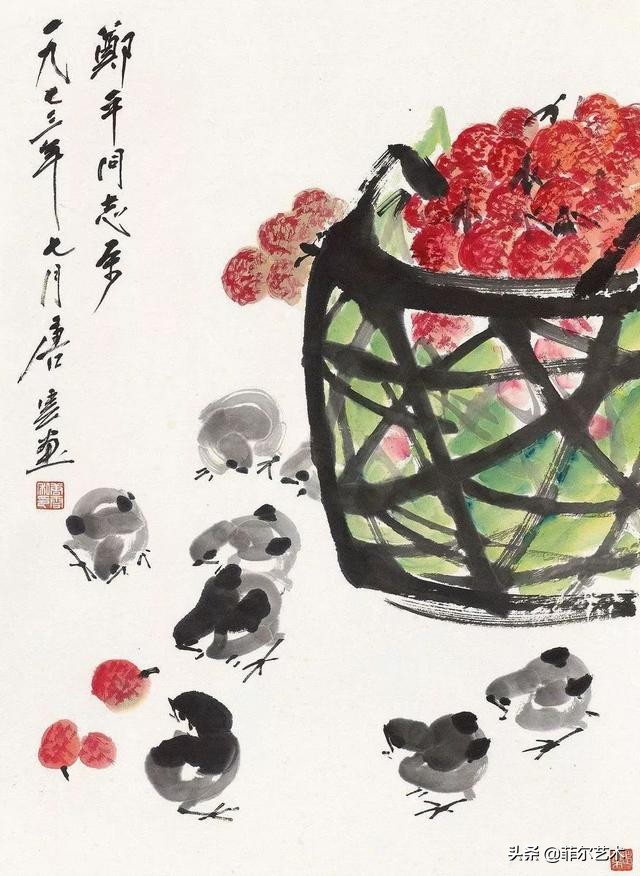 鄭平同志
一九七三年七月唐雲畫
头条 @菲尔艺术